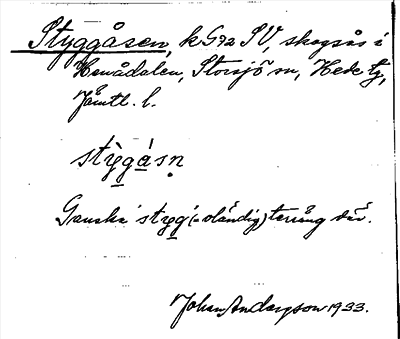 Styggåsen, k G92 SV, skogsås i
Henådalen, Storsjö sn, Hede tg,
Jämtl. l.
stỳgásn̥
Ganska stygg (= oländig) terräng där.
Johan Anderzson 1933.